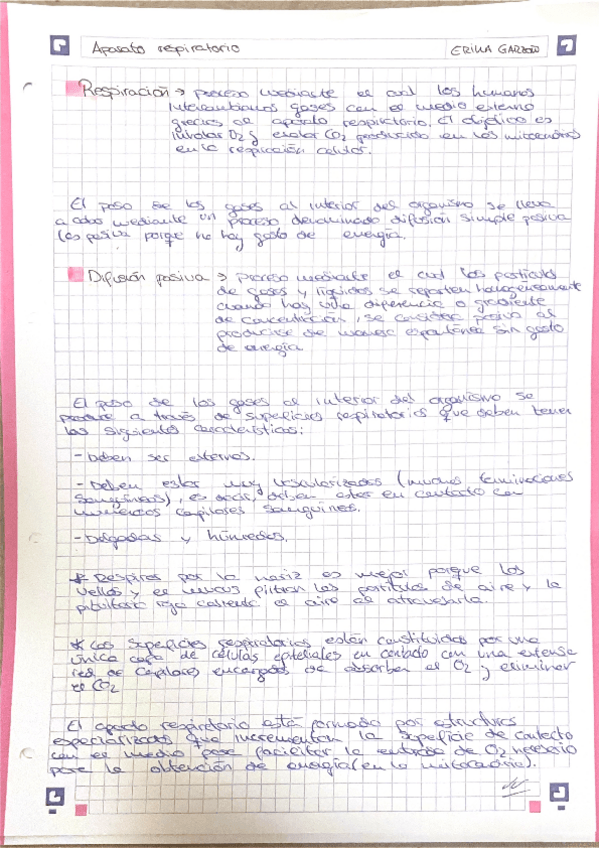 Aparato respiratorio ERIKA GARZÓN
Respiración → proceso mediante el cual los humanos
intercambiamos gases con el medio externo
gracias al aparato respiratorio. El objetivo es
inhalar O2 y exalar CO2 producido en las mitocondrias
en la respiración celular.
El paso de los gases al interior del organismo se lleva
a cabo mediante un proceso denominado difusión simple pasiva
(es pasiva porque no hay gasto de energía.
Difusión pasiva → proceso mediante el cual las partículas
de gases y líquidos se reparten homogéneamente
cuando hay una diferencia o gradiente
de concentración, se considera pasivo al
producirse de manera espontánea sin gasto
de energía
El paso de los gases al interior del organismo se
produce a través de superficies respiratorias que deben tener
las siguientes características:
- Deben ser externas.
- Deben estar muy vascularizadas (muchas terminaciones
sanguíneas), es decir, deben estar en contacto con
numerosos capilares sanguíneos.
- Delgadas y húmedas.
* Respirar por la nariz es mejor porque los
vellos y el mucus filtran las partículas de aire y la
pituitaria roja calienta el aire al atravesarla.
* Las superficies respiratorias están constituidas por una
única capa de células epiteliales en contacto con una extensa
red de capilares encargados de absorber el O2 y eliminar
el CO2
El aparato respiratorio está formado por estructuras
especializadas que incrementan la superficie de contacto
con el medio para facilitar la entrada de O2 necesario
para la obtención de energía (en la mitocondria).